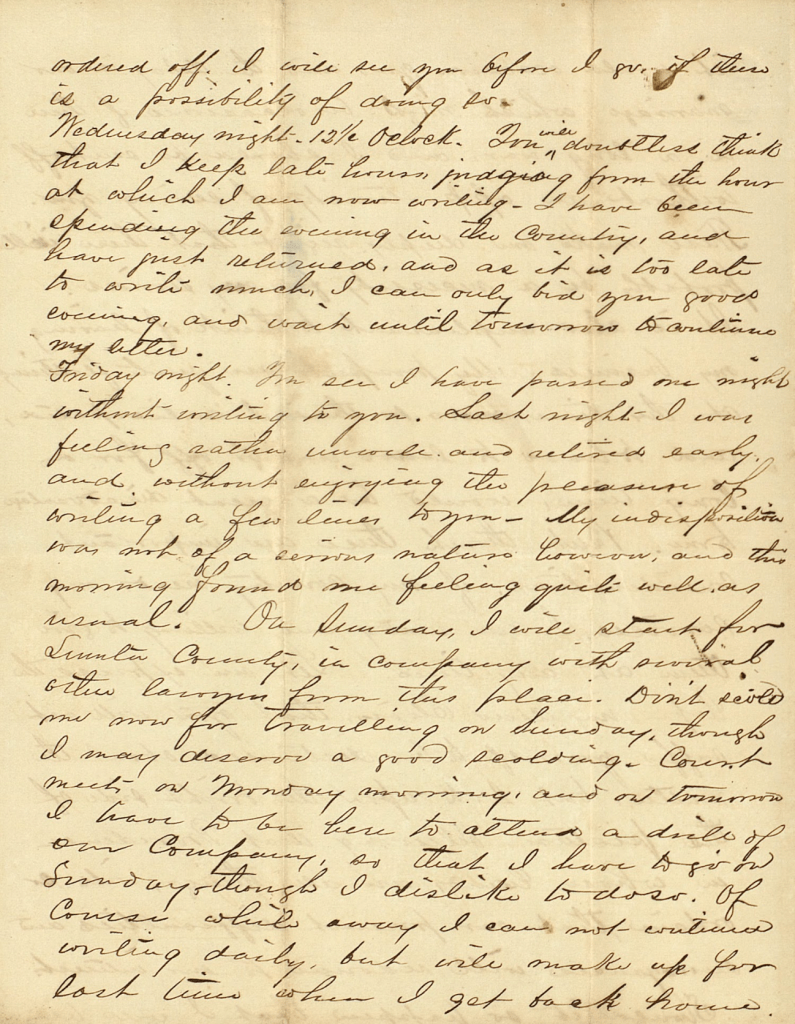 ordered off. I will see you before I go, if there
is a possibility of doing so.
Wednesday night. 12½ Oclock. You will doubtless think
that I keep late hours, judging from the hour
at which I am now writing - I have been
spending the evening in the Country, and
have just returned, and as it is too late
to write much, I can only bid you good
evening, and wait until tomorrow to continue
my letter.
Friday night. You see I have passed one night
without writing to you. Last night I was
feeling rather unwell and retired early,
and without enjoying the pleasure of
writing a few lines to you - My indisposition
was not of a serious nature however, and this
morning found me feeling quite well as
usual. On Sunday, I will start for
Sumter County, in company with several
other lawyers from this place. Don't scold
me now for travelling on Sunday, though
I may deserve a good scolding. Court
meets on Monday morning, and on tomorrow
I have to be here to attend a drill of
our Company, so that I have to go on
Sunday, though I dislike to do so. Of
Course while away I can not continue
writing daily, but will make up for
lost time when I get back home.